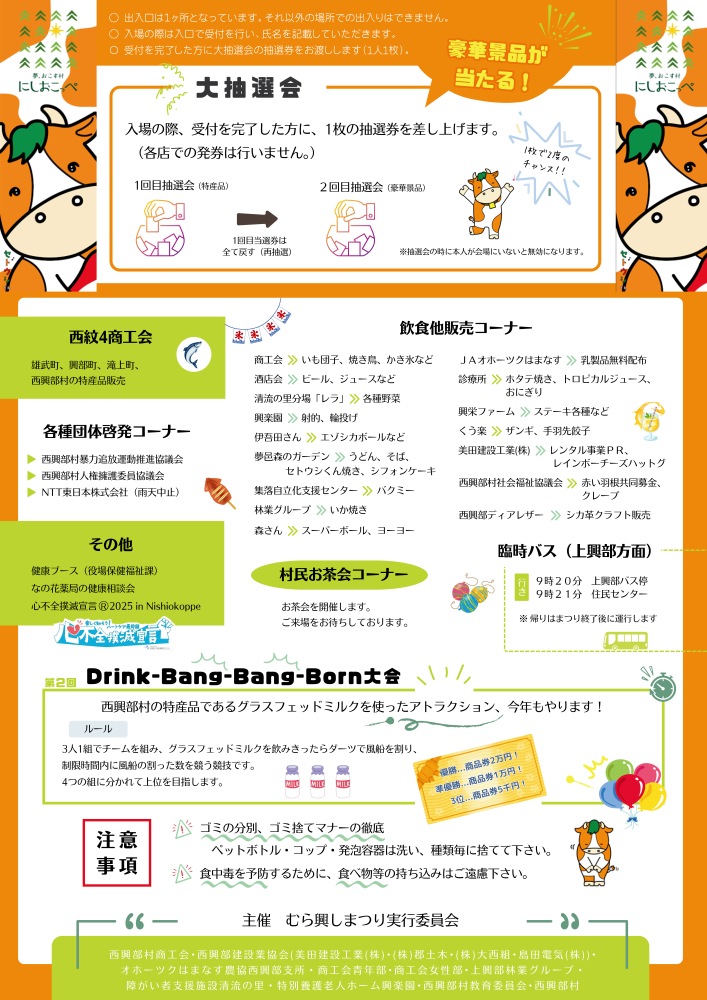 ○ 出入口は1ヶ所となっています。それ以外の場所での出入りはできません。
○ 入場の際は入口で受付を行い、氏名を記載していただきます。
○ 受付を完了した方に大抽選会の抽選券をお渡しします(1人1枚)。
夢、おこす村
にしおこっぺ
夢、おこす村
にしおこっぺ
豪華景品が
当たる！
大抽選会
入場の際、受付を完了した方に、1枚の抽選券を差し上げます。
（各店での発券は行いません。）
1枚で2度の
チャンス!!
1回目抽選会（特産品）
2回目抽選会（豪華景品）
1回目当選券は
全て戻す（再抽選）
※抽選会の時に本人が会場にいないと無効になります。
西紋4商工会
雄武町、興部町、滝上町、
西興部村の特産品販売
各種団体啓発コーナー
西興部村暴力追放運動推進協議会
西興部村人権擁護委員協議会
NTT東日本株式会社（雨天中止）
その他
健康ブース（役場保健福祉課）
なの花薬局の健康相談会
心不全撲滅宣言®2025 in Nishiokoppe
心不全撲滅宣言
氷 氷 氷 氷
飲食他販売コーナー
商工会 いも団子、焼き鳥、かき氷など
酒店会 ビール、ジュースなど
清流の里分場「レラ」 各種野菜
興楽園 射的、輪投げ
伊吾田さん エゾシカボールなど
夢邑森のガーデン うどん、そば、
セトウシくん焼き、シフォンケーキ
集落自立化支援センター パクミー
林業グループ いか焼き
森さん スーパーボール、ヨーヨー
ＪＡオホーツクはまなす 乳製品無料配布
診療所 ホタテ焼き、トロピカルジュース、
おにぎり
興栄ファーム ステーキ各種など
くう楽 ザンギ、手羽先餃子
美田建設工業(株) レンタル事業ＰＲ、
レインボーチーズハットグ
西興部村社会福祉協議会 赤い羽根共同募金、
クレープ
西興部ディアレザー シカ革クラフト販売
村民お茶会コーナー
お茶会を開催します。
ご来場をお待ちしております。
臨時バス（上興部方面）
行き
９時２０分 上興部バス停
９時２１分 住民センター
※ 帰りはまつり終了後に運行します
第2回 Drink-Bang-Bang-Born大会
西興部村の特産品であるグラスフェッドミルクを使ったアトラクション、今年もやります！
ルール
3人1組でチームを組み、グラスフェッドミルクを飲みきったらダーツで風船を割り、
制限時間内に風船の割った数を競う競技です。
4つの組に分かれて上位を目指します。
MILK MILK MILK
優勝…商品券2万円！
準優勝…商品券1万円！
3位…商品券5千円！
注意
事項
ゴミの分別、ゴミ捨てマナーの徹底
ペットボトル・コップ・発泡容器は洗い、種類毎に捨てて下さい。
食中毒を予防するために、食べ物等の持ち込みはご遠慮下さい。
主催 むら興しまつり実行委員会
西興部村商工会・西興部建設業協会(美田建設工業(株)・(株)郡土木・(株)大西組・島田電気(株))・
オホーツクはまなす農協西興部支所・商工会青年部・商工会女性部・上興部林業グループ・
障がい者支援施設清流の里・特別養護老人ホーム興楽園・西興部村教育委員会・西興部村